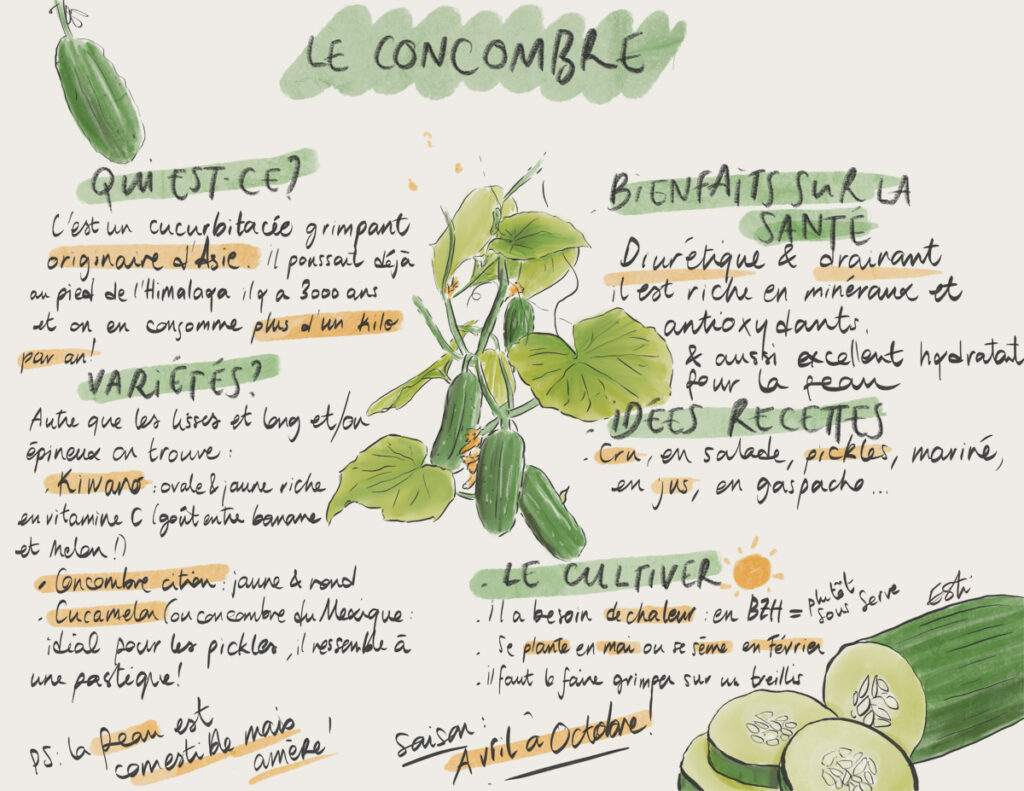 LE CONCOMBRE
QUI EST-CE?
C'est un cucurbitacée grimpant
originaire d'Asie. il poussait déjà
au pied de l'Himalaya il y a 3000 ans
et on en consomme plus d'un kilo
par an!
VARIÉTÉS?
Autre que les lisses et long et/ou
épineux on trouve :
. Kiwano : ovale & jaune riche
en vitamine C (goût entre banane
et melon!)
• Concombre citron : jaune & rond
Cucamelon (ou concombre du Mexique :
idéal pour les pickles, il ressemble à
une pastèque!
PS: la peau est
comestible mais
amère!
BIENFAITS SUR LA
SANTÉ
Diurétique & drainant
il est riche en minéraux et
antioxydants.
& aussi excellent hydratant
pour la peau
IDÉES RECETTES
. Cru, en salade, pickles, mariné,
en jus, en gaspacho...
. LE CULTIVER
. il a besoin de chaleur : en BZH = plutôt
sous serre
. Se plante en mai ou se sème en Février
. il faut le faire grimper sur un treillis
Saison :
Avril à Octobre!